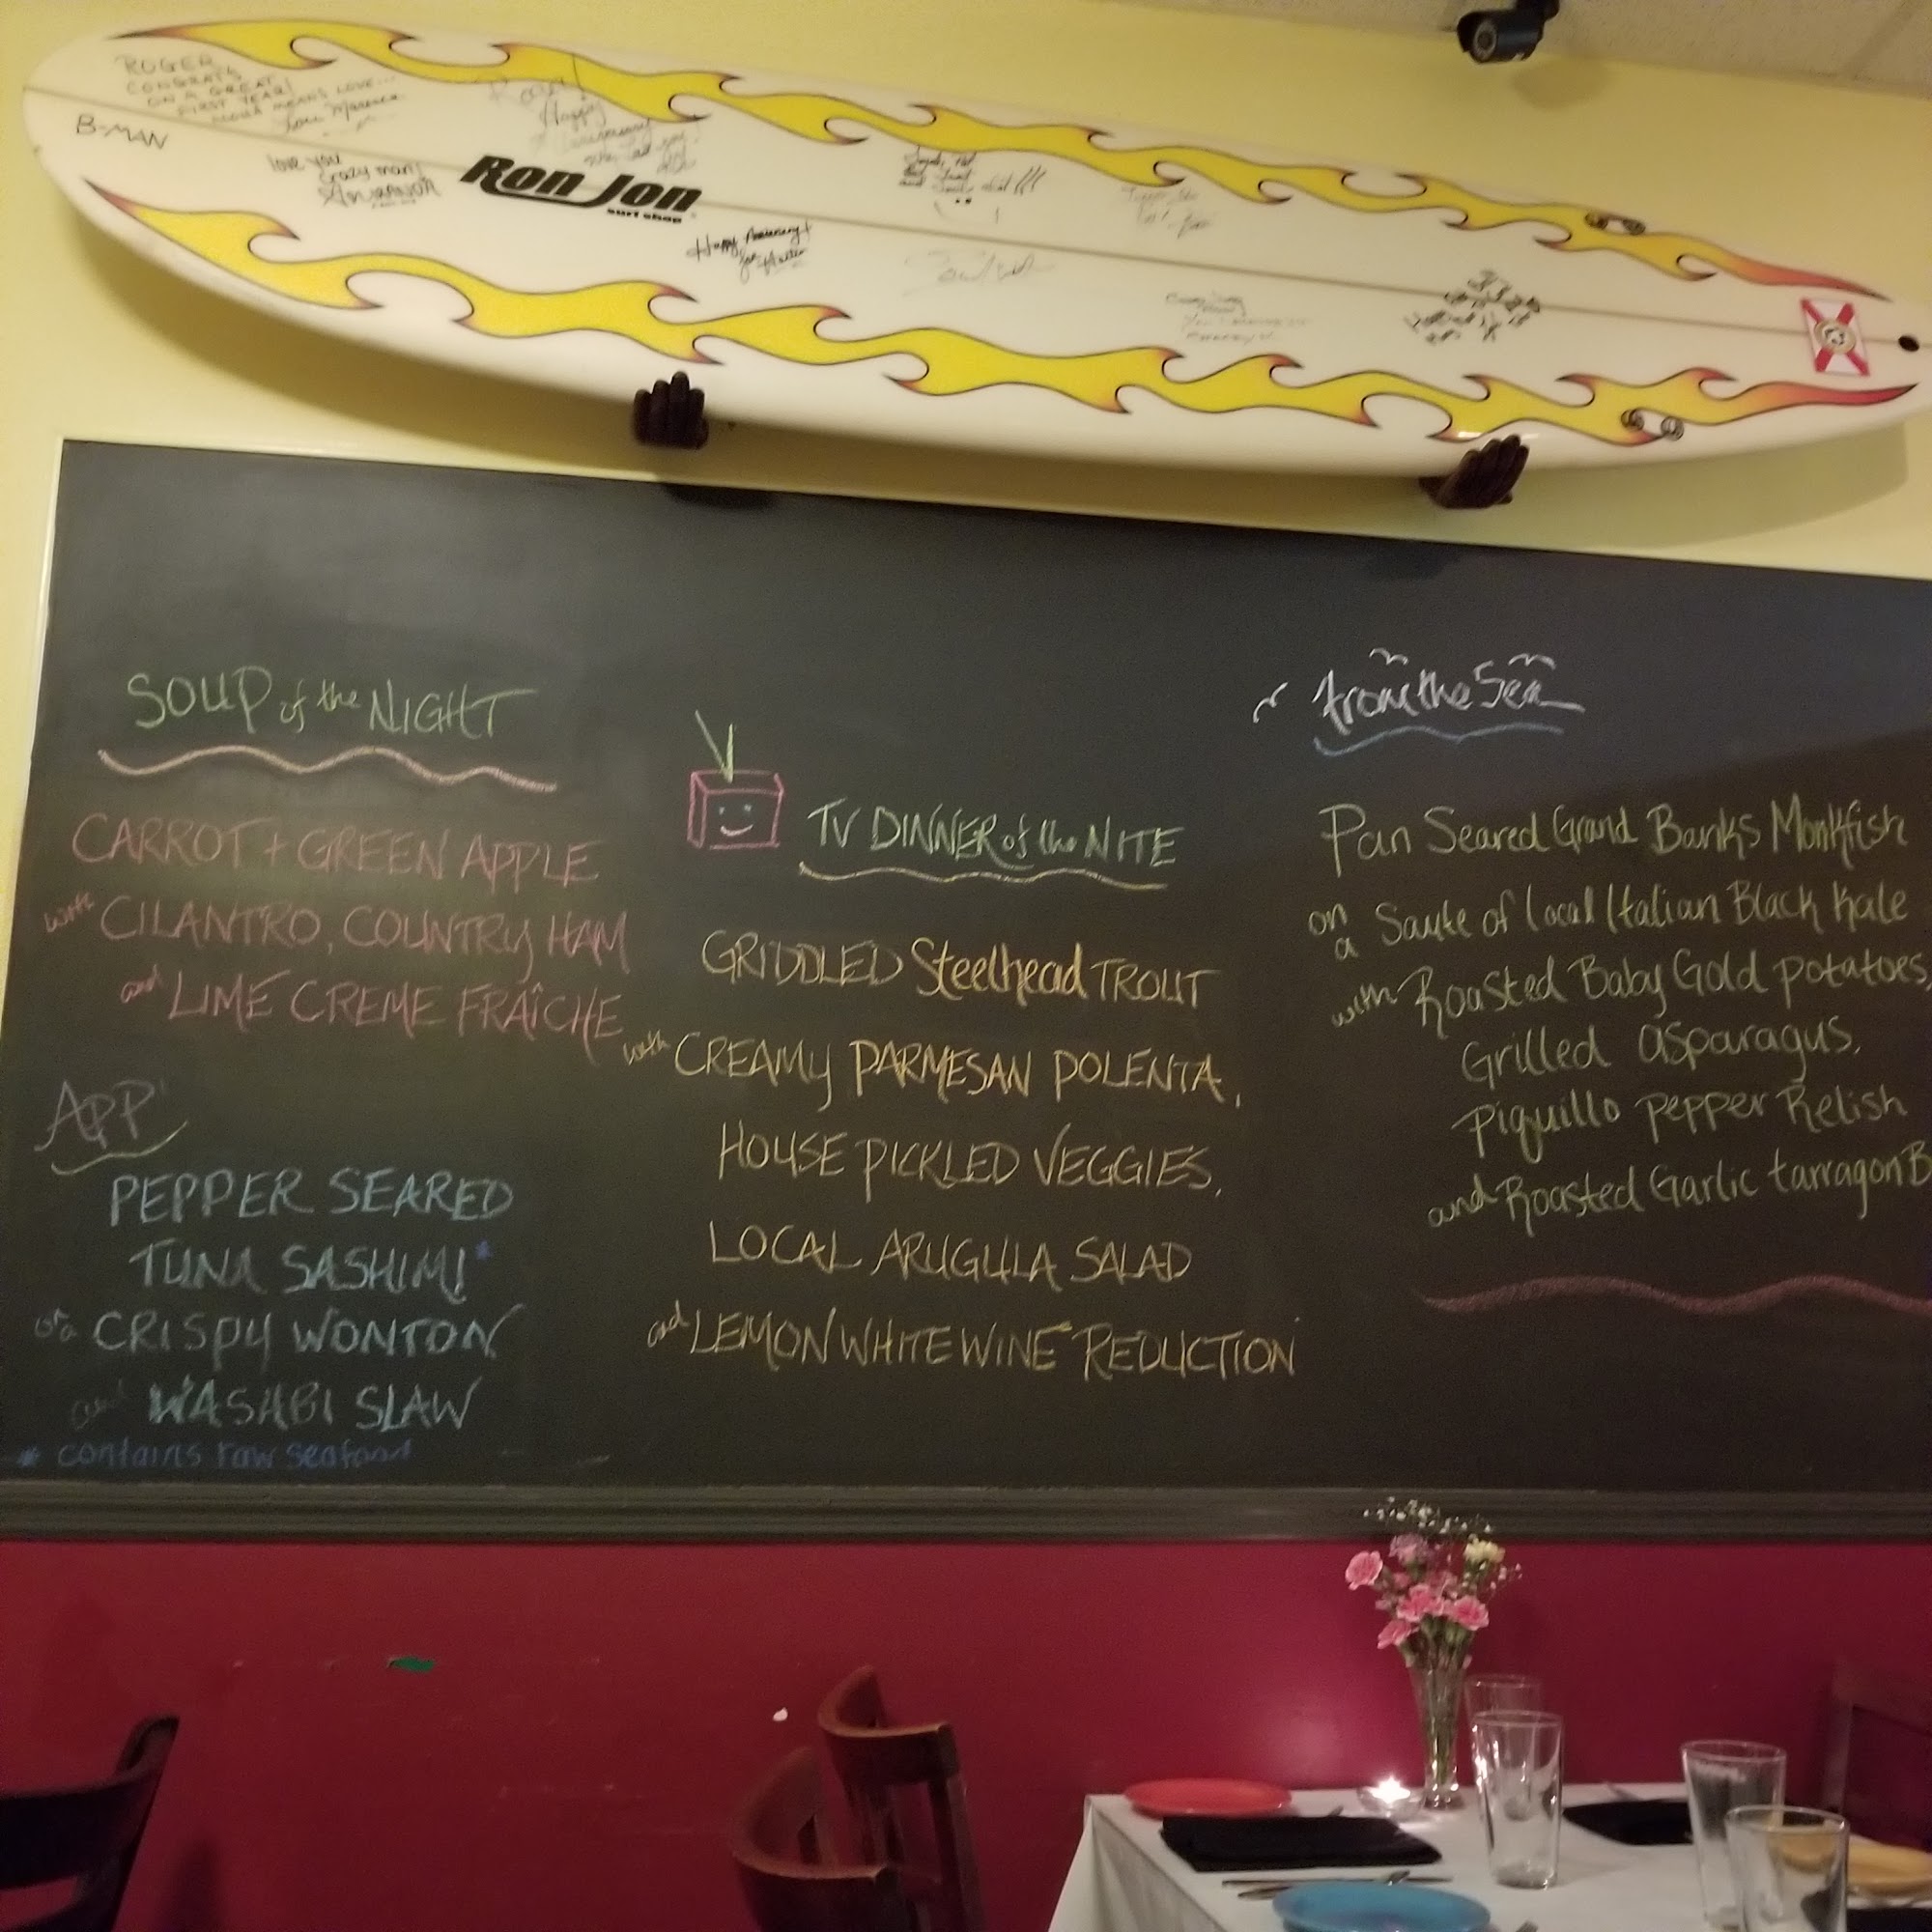 ROGER
CONGRATS
ON A GREAT
FIRST YEAR!
ALOHA MEANS LOVE...
B-MAN
love you
crazy man!
Happy
Anniversary
Ron Jon
surf shop
Happy Anniversary!
SOUP of the NIGHT
CARROT + GREEN APPLE
with CILANTRO, COUNTRY HAM
and LIME CREME FRAÎCHE
APP
PEPPER SEARED
TUNA SASHIMI*
on a CRISPY WONTON
and WASABI SLAW
* contains raw seafood
TV DINNER of the NITE
GRIDDLED Steelhead TROUT
with CREAMY PARMESAN POLENTA,
HOUSE PICKLED VEGGIES,
LOCAL ARUGULA SALAD
and LEMON WHITE WINE REDUCTION
from the Sea
Pan Seared Grand Banks Monkfish
on a Saute of local Italian Black Kale
with Roasted Baby Gold potatoes,
Grilled asparagus,
piquillo pepper Relish
and Roasted Garlic tarragon B